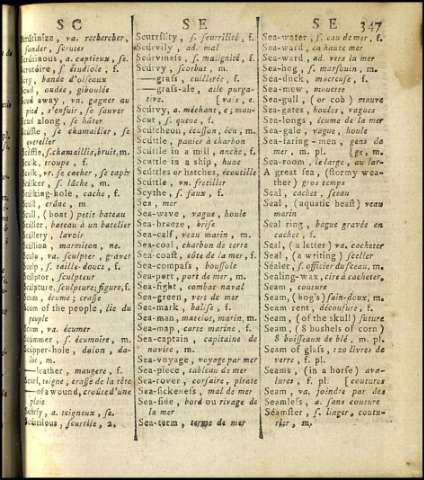 S C
S E
S E
347
va. rechercher,
sonder, scruter
a. captieux, se.
s. étudiole, f.
bande d'oiseaux
oudée, giboulée
away, vn. gagner au
pié, s'enfuir, se sauver
along, se hâter
se chamailler, se
quereller
s. chamaillis, bruit, m.
troupe, f.
vn. se cacher, se tapir
s. lâche, m.
cache, f.
crâne, m.
(boat) petit bateau
bateau à un batelier
lavoir
marmiton, ne.
va. sculpter, graver
s. taille-douce, f.
Sculptor, sculpteur
Sculpture, sculpture; figure, f.
Scum, écume; crasse
Scum of the people, lie du
peuple
Scum, va. écumer
s. écumoire, m.
dalon, da-
m.
leather, maugere, f.
teigne, crasse de la tête
of a wound, croûte d'une
plaie
a. teigneux, se.
Scurrility, s. scurrilité, f.
Scurvily, ad. mal
Scurviness, s. malignité, f.
Scurvy, scorbut, m.
—grass, cuillerée, f.
—grass-ale, aile purga-
tive. [vais, e.
Scurvy, a. méchant, e; mau-
Scut, s. queue, f.
Scutcheon, écusson, écu, m.
Scuttle, panier à charbon
Scuttle in a mill, anche, f.
Scuttle in a ship, hune
Scuttles or hatches, écoutille
Scuttle, vn. frétiller
Scythe, s. faux, f.
Sea, mer
Sea-wave, vague, houle
Sea-breeze, brise
Sea-calf, veau marin, m.
Sea-coal, charbon de terre
Sea-coast, côte de la mer, f.
Sea-compass, boussole
Sea-port, port de mer, m.
Sea-fight, combat naval
Sea-green, vert de mer
Sea-mark, balise, f.
Sea-man, matelot, marin, m.
Sea-map, carte marine, f.
Sea-captain, capitaine de
navire, m.
Sea-voyage, voyage par mer
Sea-piece, tableau de mer
Sea-rover, corsaire, pirate
Sea-sickness, mal de mer
Sea-side, bord ou rivage de
la mer
Sea-term, terme de mer
Sea-water, s. eau de mer, f.
Sea-ward, en haute mer
Sea-ward, ad. vers la mer
Sea-hog, s. marsouin, m.
Sea-duck, macreuse, f.
Sea-mew, mouette
Sea-gull, (or cob) mauve
Sea-gates, houles, vagues
Sea-longs, écume de la mer
Sea-gale, vague, houle
Sea-faring-men, gens de
mer, m. pl. [ge, m.
Sea-room, le large, au lar-
A great sea, (stormy wea-
ther) gros temps
Seal, cachet, sceau
Seal, (aquatic beast) veau
marin
Seal ring, bague gravée en
cachet, f.
Seal, (a letter) va. cacheter
Seal, (a writing) sceller
Sealer, s. officier du sceau, m.
Sealing-wax, cire à cacheter,
Seam, couture
Seam, (hog's) sain-doux, m.
Seam rent, décousure, f.
Seam, (of the skull) suture
Seam, (8 bushels of corn)
8 boisseaux de blé, m. pl.
Seam of glass, 120 livres de
verre, f. pl.
Seams, (in a horse) ava-
lures, f. pl. [coutures
Seam, va. joindre par des
Seamless, a. sans couture
Seamster, s. linger, coutu-
rier, m.